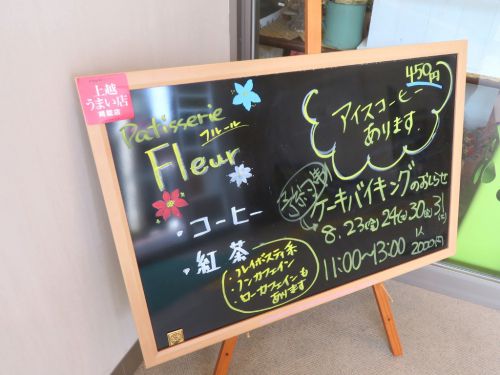 上越
うまい店
掲載店
Patisserie
フルール
Fleur
・コーヒー
・紅茶
・ルイボスティ系
・ノンカフェイン
・ローカフェインも
あります
450円
アイスコーヒー
あります
ケーキバイキングのおしらせ
8.23(金)24(土)30(金)31(土)
11:00〜13:00
1人
2000円